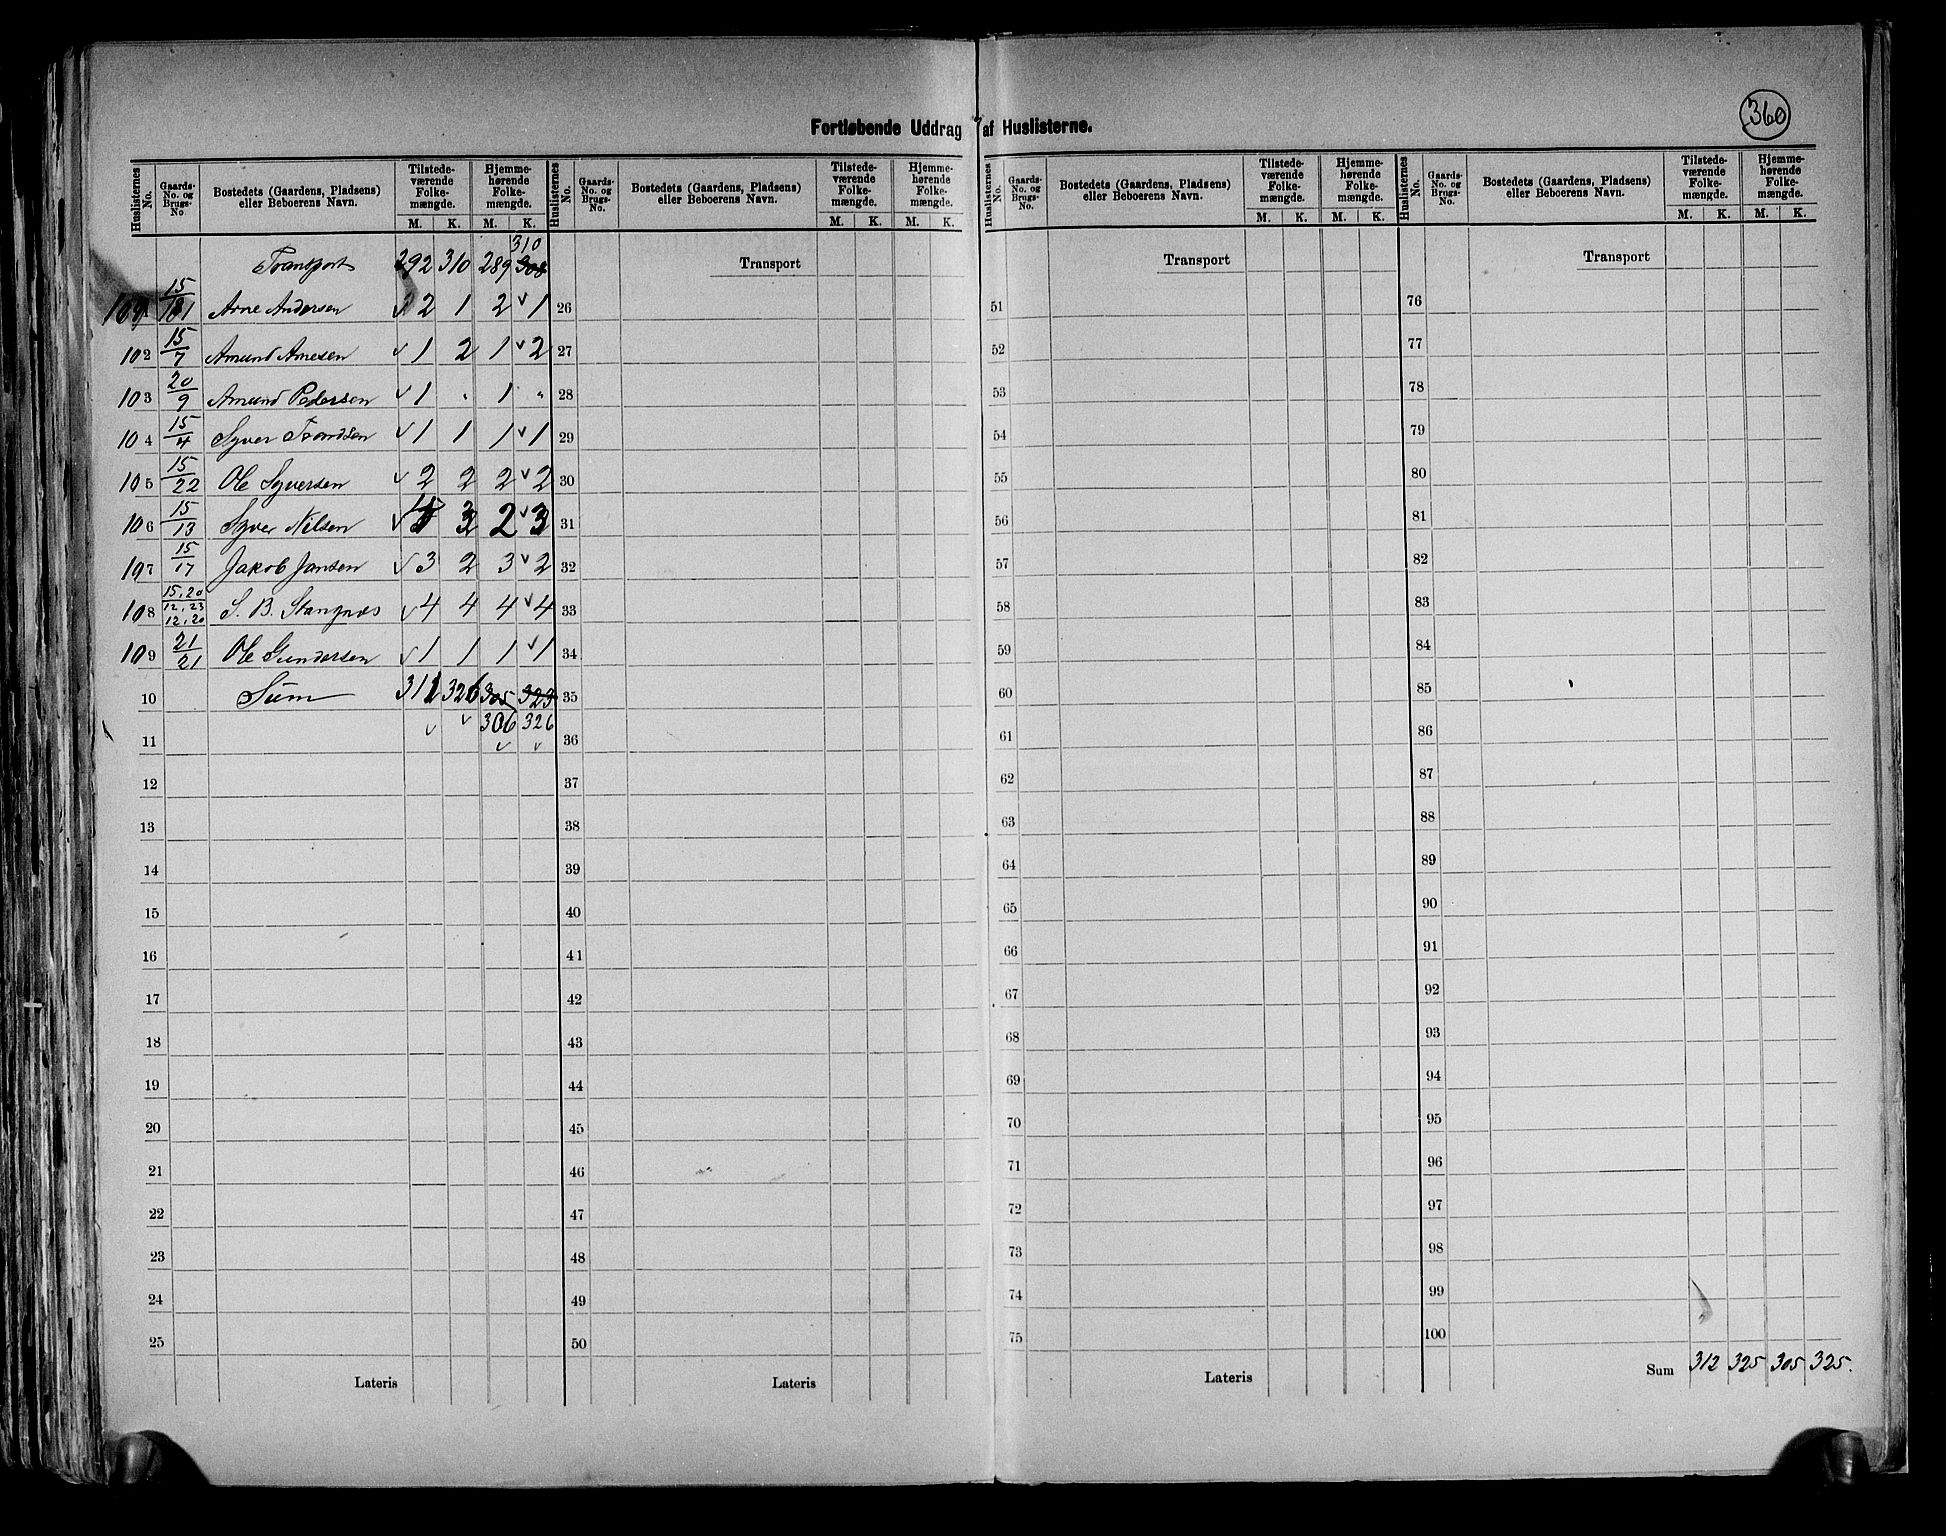 360
Fortløbende Uddrag af Huslisterne.
Huslisternes No. Gaards-No. og Brugs-No Bostedets (Gaardens, Pladsens) eller Beboerens Navn. Tilstede-værende Folke-mængde. M. K. Hjemme-hørende Folke-mængde. M. K.
Huslisternes No. Gaards-No. og Brugs-No. Bostedets (Gaardens, Pladsens) eller Beboerens Navn. Tilstede-værende Folke-mængde. M. K. Hjemme-hørende Folke-mængde. M. K.
Huslisternes No. Gaards-No. og Brugs-No. Bostedets (Gaardens, Pladsens) eller Beboerens Navn. Tilstede-værende Folke-mængde. M. K. Hjemme-hørende Folke-mængde. M. K.
Huslisternes No. Gaards-No. og Brugs-No. Bostedets (Gaardens, Pladsens) eller Beboerens Navn. Tilstede-værende Folke-mængde. M. K. Hjemme-hørende Folke-mængde. M. K.
310
Transport 292 310 289 308 Transport Transport Transport
Arne Andersen 2 1 2 1 26 51 76
102 15/7 Amund Arnesen 1 2 1 2 27 52 77
103 20/9 Amund Pedersen 1 " 1 " 28 53 78
104 15/4 Syver Trondsen 1 1 1 1 29 54 79
105 15/22 Ole Syversen 2 2 2 2 30 55 80
106 15/13 Syver Nilsen 3 2 3 31 56 81
107 15/17 Jakob Jansen 3 2 3 2 32 57 82
108 15,20 12,23 12,20 S. B. Stangnæs 4 4 4 4 33 58 83
109 21/21 Ole Gundersen 1 1 1 1 34 59 84
10 Sum 312 326 305 323 35 60 85
11 306 326 36 61 86
12 37 62 87
13 38 63 88
14 39 64 89
15 40 65 90
16 41 66 91
17 42 67 92
18 43 68 93
19 44 69 94
20 45 70 95
21 46 71 96
22 47 72 97
23 48 73 98
24 49 74 99
25 50 75 100
Lateris Lateris Lateris Sum 312 325 305 325.